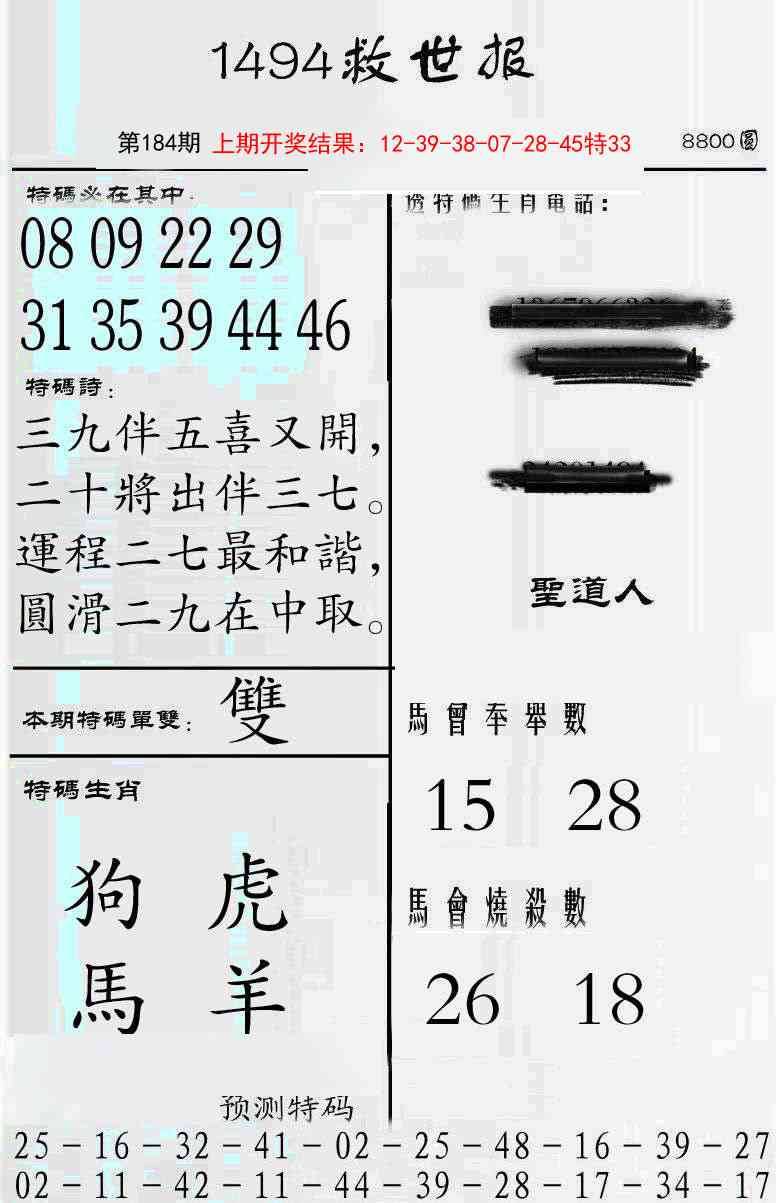 1494救世报
第184期 上期开奖结果：12-39-38-07-28-45特33 8800圓
特碼必在其中：
08 09 22 29
31 35 39 44 46
特碼詩：
三九伴五喜又開，
二十將出伴三七。
運程二七最和諧，
圓滑二九在中取。
本期特碼單雙： 雙
特碼生肖
狗 虎
馬 羊
透特碼生肖電話：
聖道人
馬會奉舉數
15 28
馬會燒殺數
26 18
预测特码
25－16－32－41－02－25－48－16－39－27
02－11－42－11－44－39－28－17－34－17